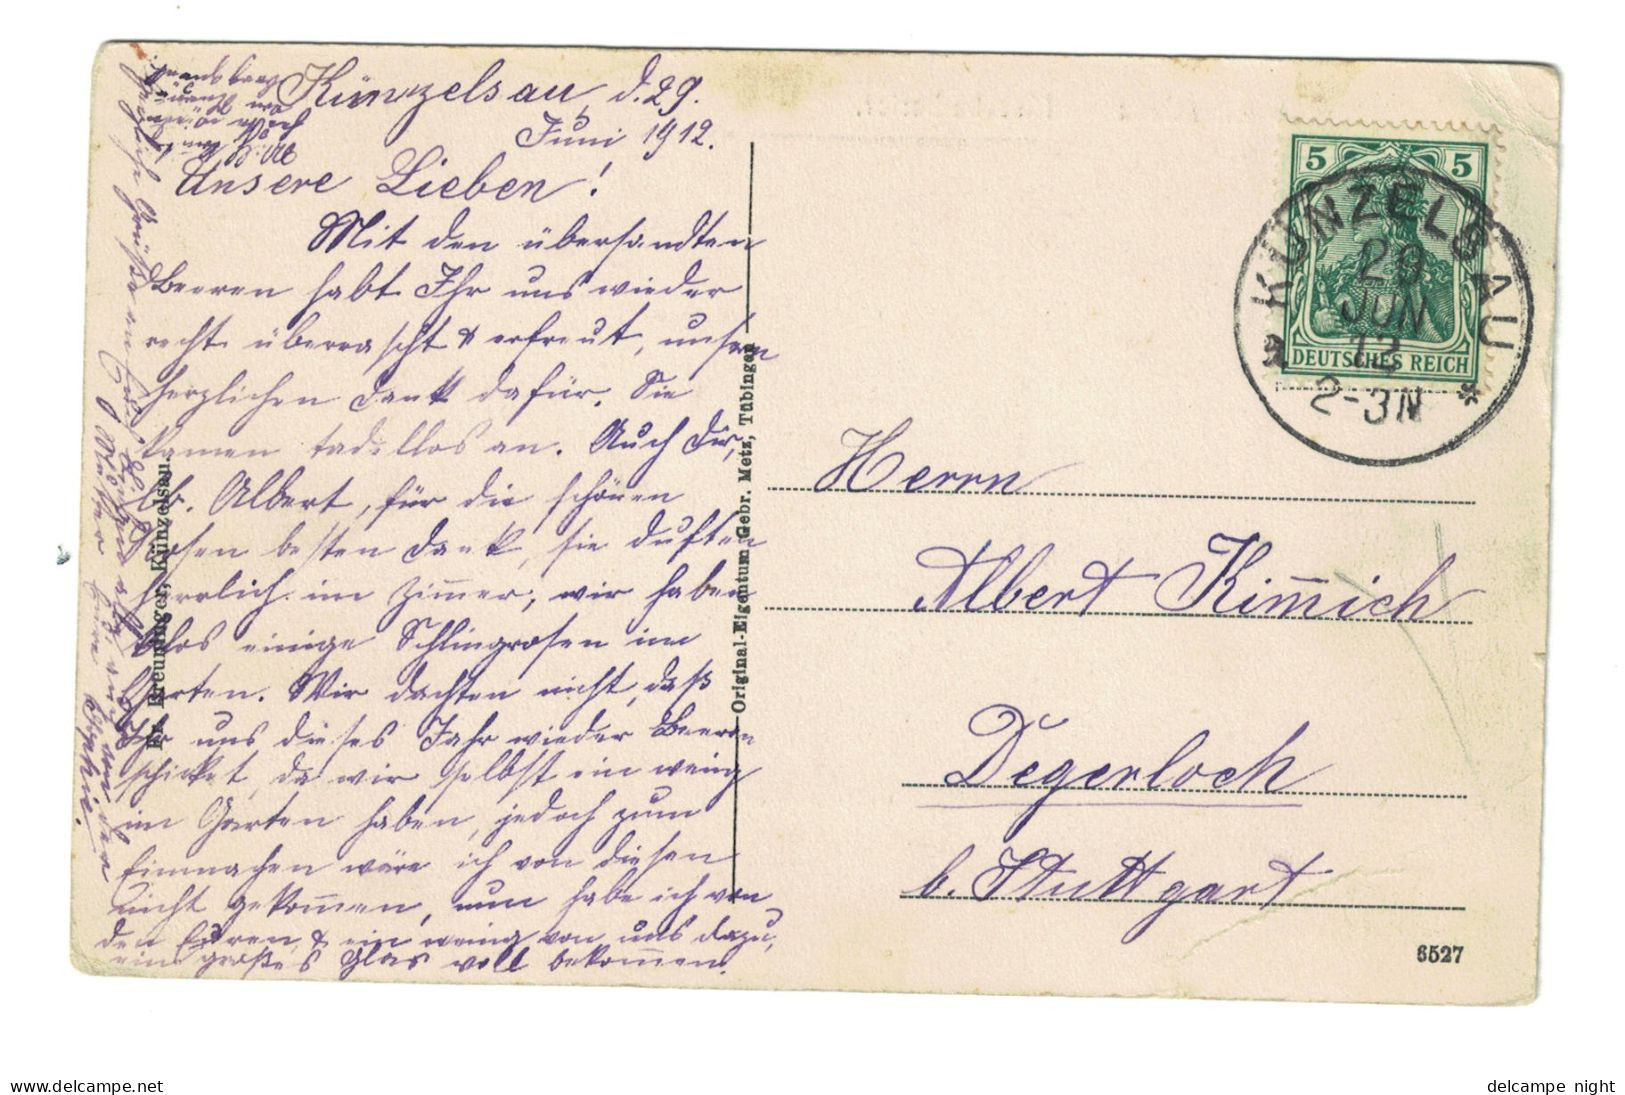 Künzelsau, d. 29.
Juni 1912.
Unsere Lieben!
Mit den übersandten
Beeren habt Ihr uns wieder
recht überrascht & erfreut, unsern
herzlichen Dank dafür. Sie
kamen tadellos an. Auch Dir,
lb. Albert, für die schönen
Rosen besten Dank, sie duften
herrlich im Zimmer, wir haben
blos einige Schlingrosen im
Garten. Wir dachten nicht, daß
Ihr uns dieses Jahr wieder Beeren
schicket, da wir selbst ein wenig
im Garten haben, jedoch zum
Einmachen wäre ich von diesen
nicht gekom̄en, nun habe ich von
den Euren & ein wenig von uns dazu,
ein großes Glas voll bekom̄en.
Herzliche Grüße an
Mutter Eure Sophie.
Fr. Breuninger, Künzelsau.
Original-Eigentum Gebr. Metz, Tübingen
5 5
DEUTSCHES REICH
KÜNZELSAU
29
JUN
12
2-3N
Herrn
Albert Kim̄ich
Degerloch
b. Stuttgart
6527
www.delcampe.net
delcampe night